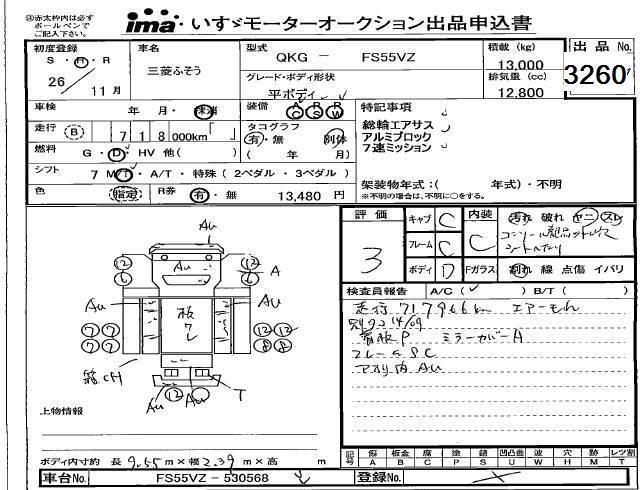 赤太枠内は必ず
ボールペンで
ご記入下さい。
ima いすゞモーターオークション出品申込書
初度登録
S・H・R
26 11月
車名
三菱ふそう
型式
QKG － FS55VZ
グレード・ボディ形状
平ボディ
積載 (kg)
13,000
排気量 (cc)
12,800
出品No.
3260
車検 年 月・抹消
装備 A P R
C S W
走行 B 7 1 8 000km
タコグラフ
有・無 別体
( 年 月)
燃料 G・D・HV 他( )
シフト 7 M/T・A/T・特殊 (2ペダル・3ペダル)
色 指定 R券 有・無 13,480 円
特記事項
総輪エアサス
アルミブロック
7速ミッション
架装物年式:( 年式)・不明
※不明の場合は、不明に○をする。
評価 3
キャブ C
フレーム C
ボディ D
内装 C
Fガラス
汚れ 破れ ヤニ スレ
割れ 線 点傷 イバリ
検査員報告 A/C ( ) B/T ( )
走行717966km エアーもれ
別タコ14/09
看板P ミラーカバーA
フレームSC
アオリ内Au
Au
13 13
6 6
Au
A
Au Au
板
ワレ
7 7 13 13
7 7 8 8
箱CH
T
Au 12 Au
上物情報
ボディ内寸約 長 9.55 m×幅 2.39 m×高 m
記号 傷 板金 腐 塗 錆 凹凸曲 凹 波 穴 跡 レツ割
A B C P S U W H M T
車台No. FS55VZ－530568
登録No.